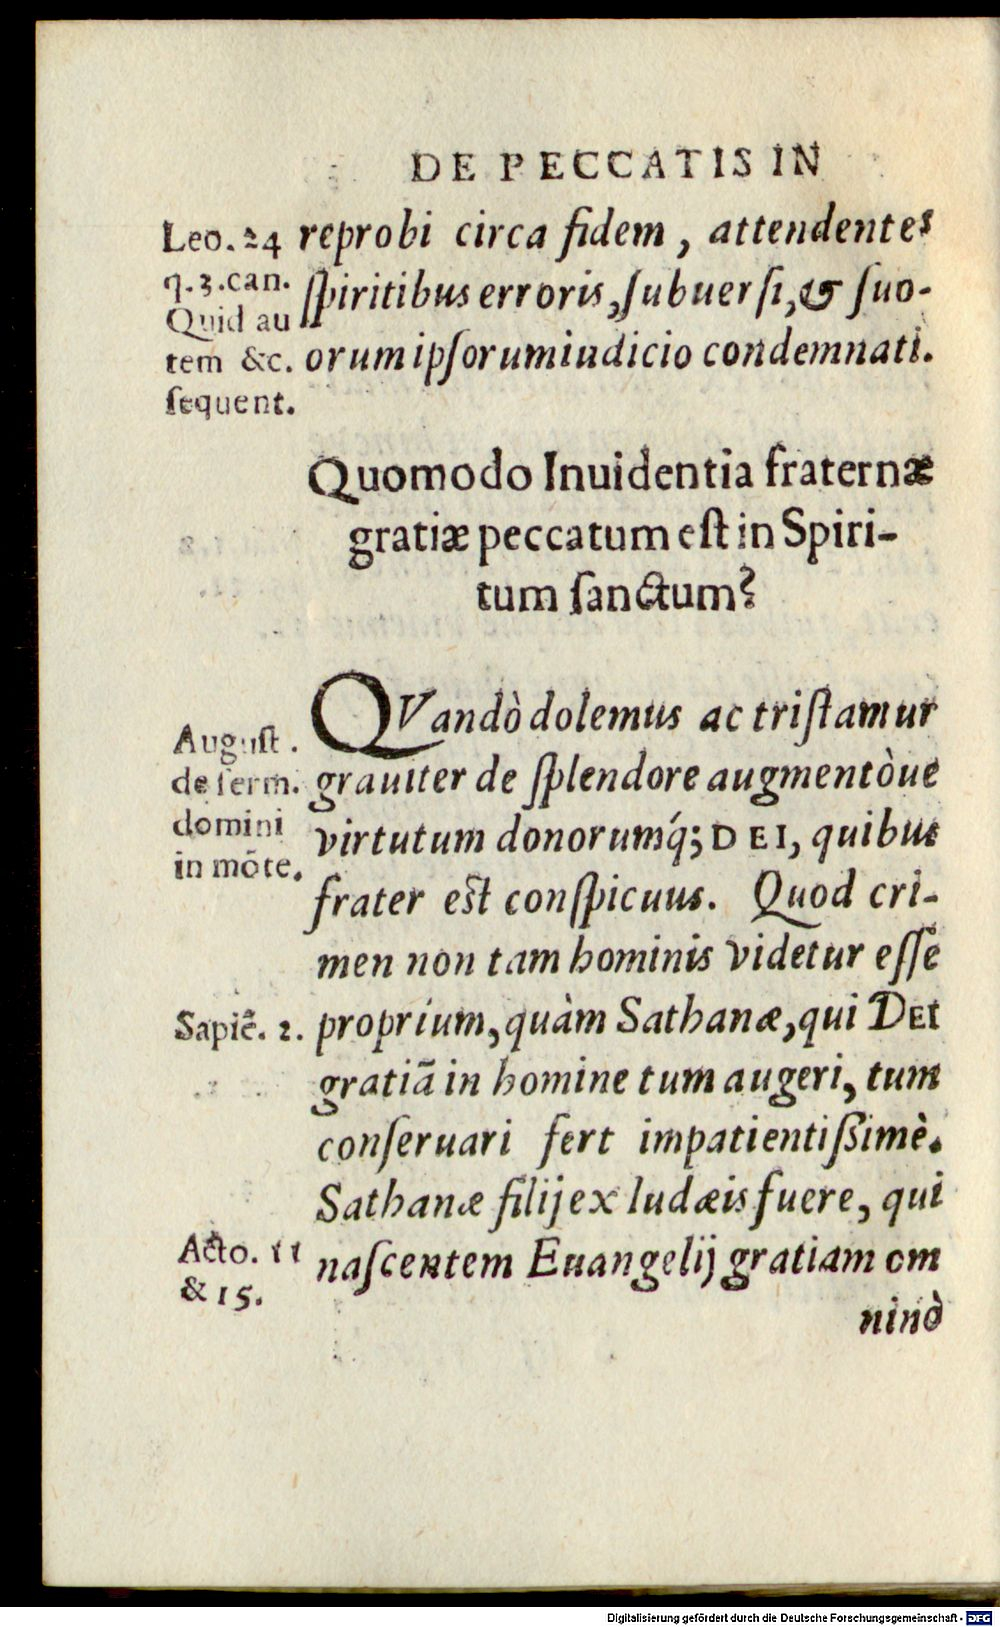 DE PECCATIS IN
Leo. 24
q. 3. can.
Quid au
tem &c.
sequent.
reprobi circa fidem, attendentes
spiritibus erroris, subuersi, & suo-
orum ipsorum iudicio condemnati.
Quomodo Inuidentia fraternæ
gratiæ peccatum est in Spiri-
tum sanctum?
August.
de serm.
domini
in mõte.
QVandò dolemus ac tristamur
grauiter de splendore augmentòue
virtutum donorumq́; DEI, quibus
frater est conspicuus. Quod cri-
men non tam hominis videtur esse
Sapiẽ. 2.
proprium, quàm Sathanæ, qui DEI
gratiã in homine tum augeri, tum
conseruari fert impatientißimè.
Sathanæ filij ex Iudæis fuere, qui
Acto. 11
& 15.
nascentem Euangelij gratiam om
ninò
Digitalisierung gefördert durch die Deutsche Forschungsgemeinschaft - DFG